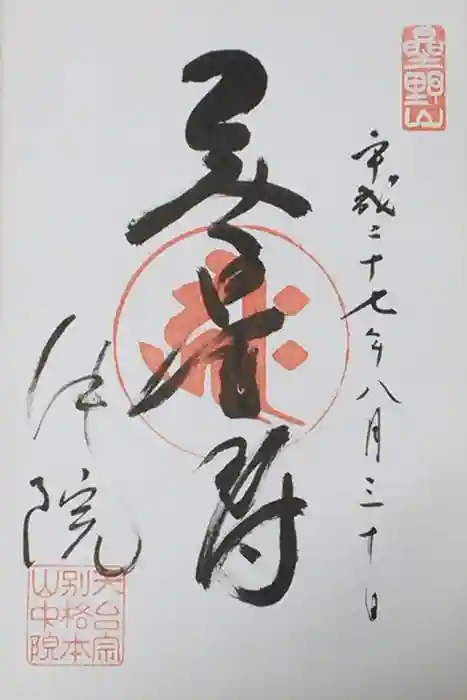 星野山
平成二十七年八月三十日
無量寿
仲院
天台宗
別格本
山中院